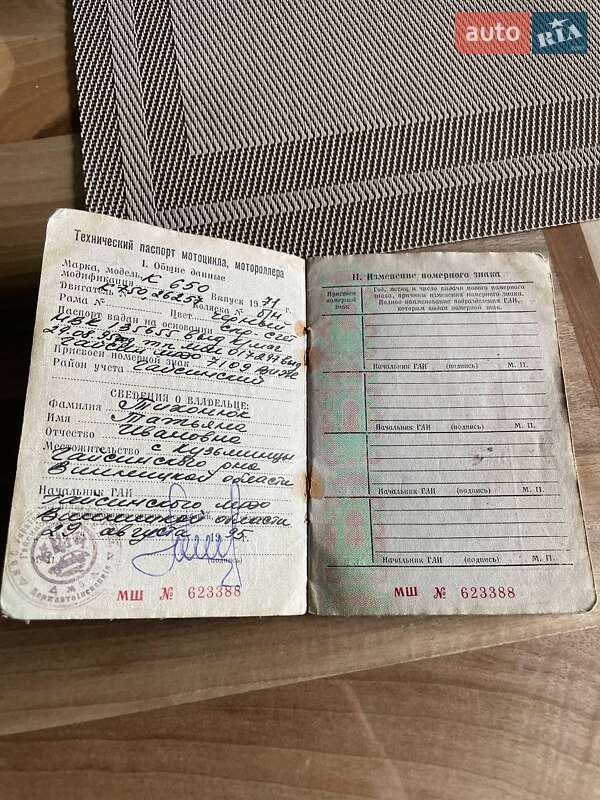 auto RIA
.com
Технический паспорт мотоцикла, мотороллера
I. Общие данные
Марка, модель К 650
модификация
Двигатель К 750, 26257 Выпуск 1971 г.
Рама № Коляска № б/н
Паспорт выдан на основании
Присвоен номерной знак
Район учета Гайсинский
СВЕДЕНИЯ О ВЛАДЕЛЬЦЕ:
Фамилия Тихонюк
Имя Татьяна
Отчество Ивановна
Местожительство Кузьминцы
Гайсинского р-на
Винницкой области
Начальник ГАИ
Гайсинского МРЭО
Винницкой области
29 августа 1995.
(подпись)
МШ № 623388
II. Изменение номерного знака
Присвоен номерной знак
Год, месяц и число выдачи нового номерного знака, причина изменения номерного знака. Полное наименование подразделения ГАИ, которым выдан номерной знак.
Начальник ГАИ (подпись) М. П.
Начальник ГАИ (подпись) М. П.
Начальник ГАИ (подпись) М. П.
Начальник ГАИ (подпись) М. П.
МШ № 623388